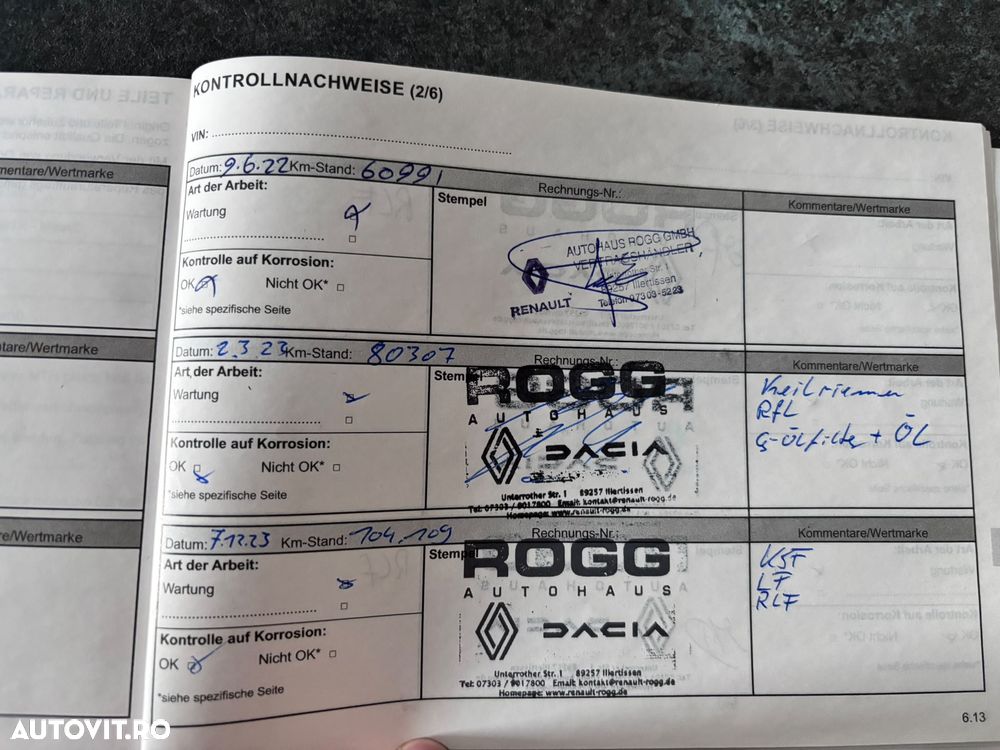 TEILE UND REPARA
KONTROLLNACHWEISE (2/6)
VIN:
mentare/Wertmarke
Datum: 9.6.22 Km-Stand: 60991
Rechnungs-Nr.:
Kommentare/Wertmarke
Art der Arbeit:
Stempel
Wartung
AUTOHAUS ROGG GMBH
VERTRAGSHÄNDLER
Str. 1
89257 Illertissen
Telefon 07303-5223
RENAULT
Kontrolle auf Korrosion:
OK Nicht OK*
*siehe spezifische Seite
ntare/Wertmarke
Datum: 2.3.23 Km-Stand: 80307
Rechnungs-Nr.:
Kommentare/Wertmarke
Art der Arbeit:
Stem
Wartung
ROGG
AUTOHAUS
DACIA
Unterrother Str. 1 89257 Illertissen
Tel: 07303 / 9017800 Email: kontakt@renault-rogg.de
Homepage: www.renault-rogg.de
Keilriemen
RFL
G-Ölfilter + ÖL
Kontrolle auf Korrosion:
OK Nicht OK*
*siehe spezifische Seite
e/Wertmarke
Datum: 7.12.23 Km-Stand: 104.109
Rechnungs-Nr.:
Kommentare/Wertmarke
Art der Arbeit:
Stempel
Wartung
ROGG
AUTOHAUS
DACIA
Unterrother Str. 1 89257 Illertissen
Tel: 07303 / 9017800 Email: kontakt@renault-rogg.de
Homepage: www.renault-rogg.de
KSF
LF
RLF
Kontrolle auf Korrosion:
OK Nicht OK*
*siehe spezifische Seite
6.13
AUTOVIT.RO